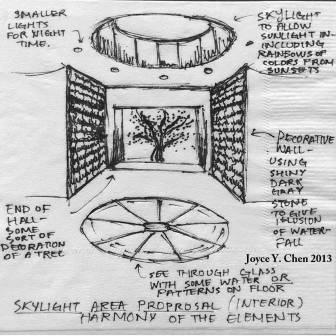 SMALLER
LIGHTS
FOR NIGHT
TIME.
SKYLIGHT
TO ALLOW
SUNLIGHT IN-
INCLUDING
RAINBOWS OF
COLORS FROM
SUNSETS
DECORATIVE
WALL-
USING
SHINY
DARK
GRAY
STONE
TO GIVE
ILLUSION
OF WATER-
FALL
END OF
HALL-
SOME
SORT OF
DECORATION
OF A TREE
Joyce Y. Chen 2013
SEE THROUGH GLASS
WITH SOME WATER OR
PATTERNS ON FLOOR
SKYLIGHT AREA PROPROSAL (INTERIOR)
HARMONY OF THE ELEMENTS